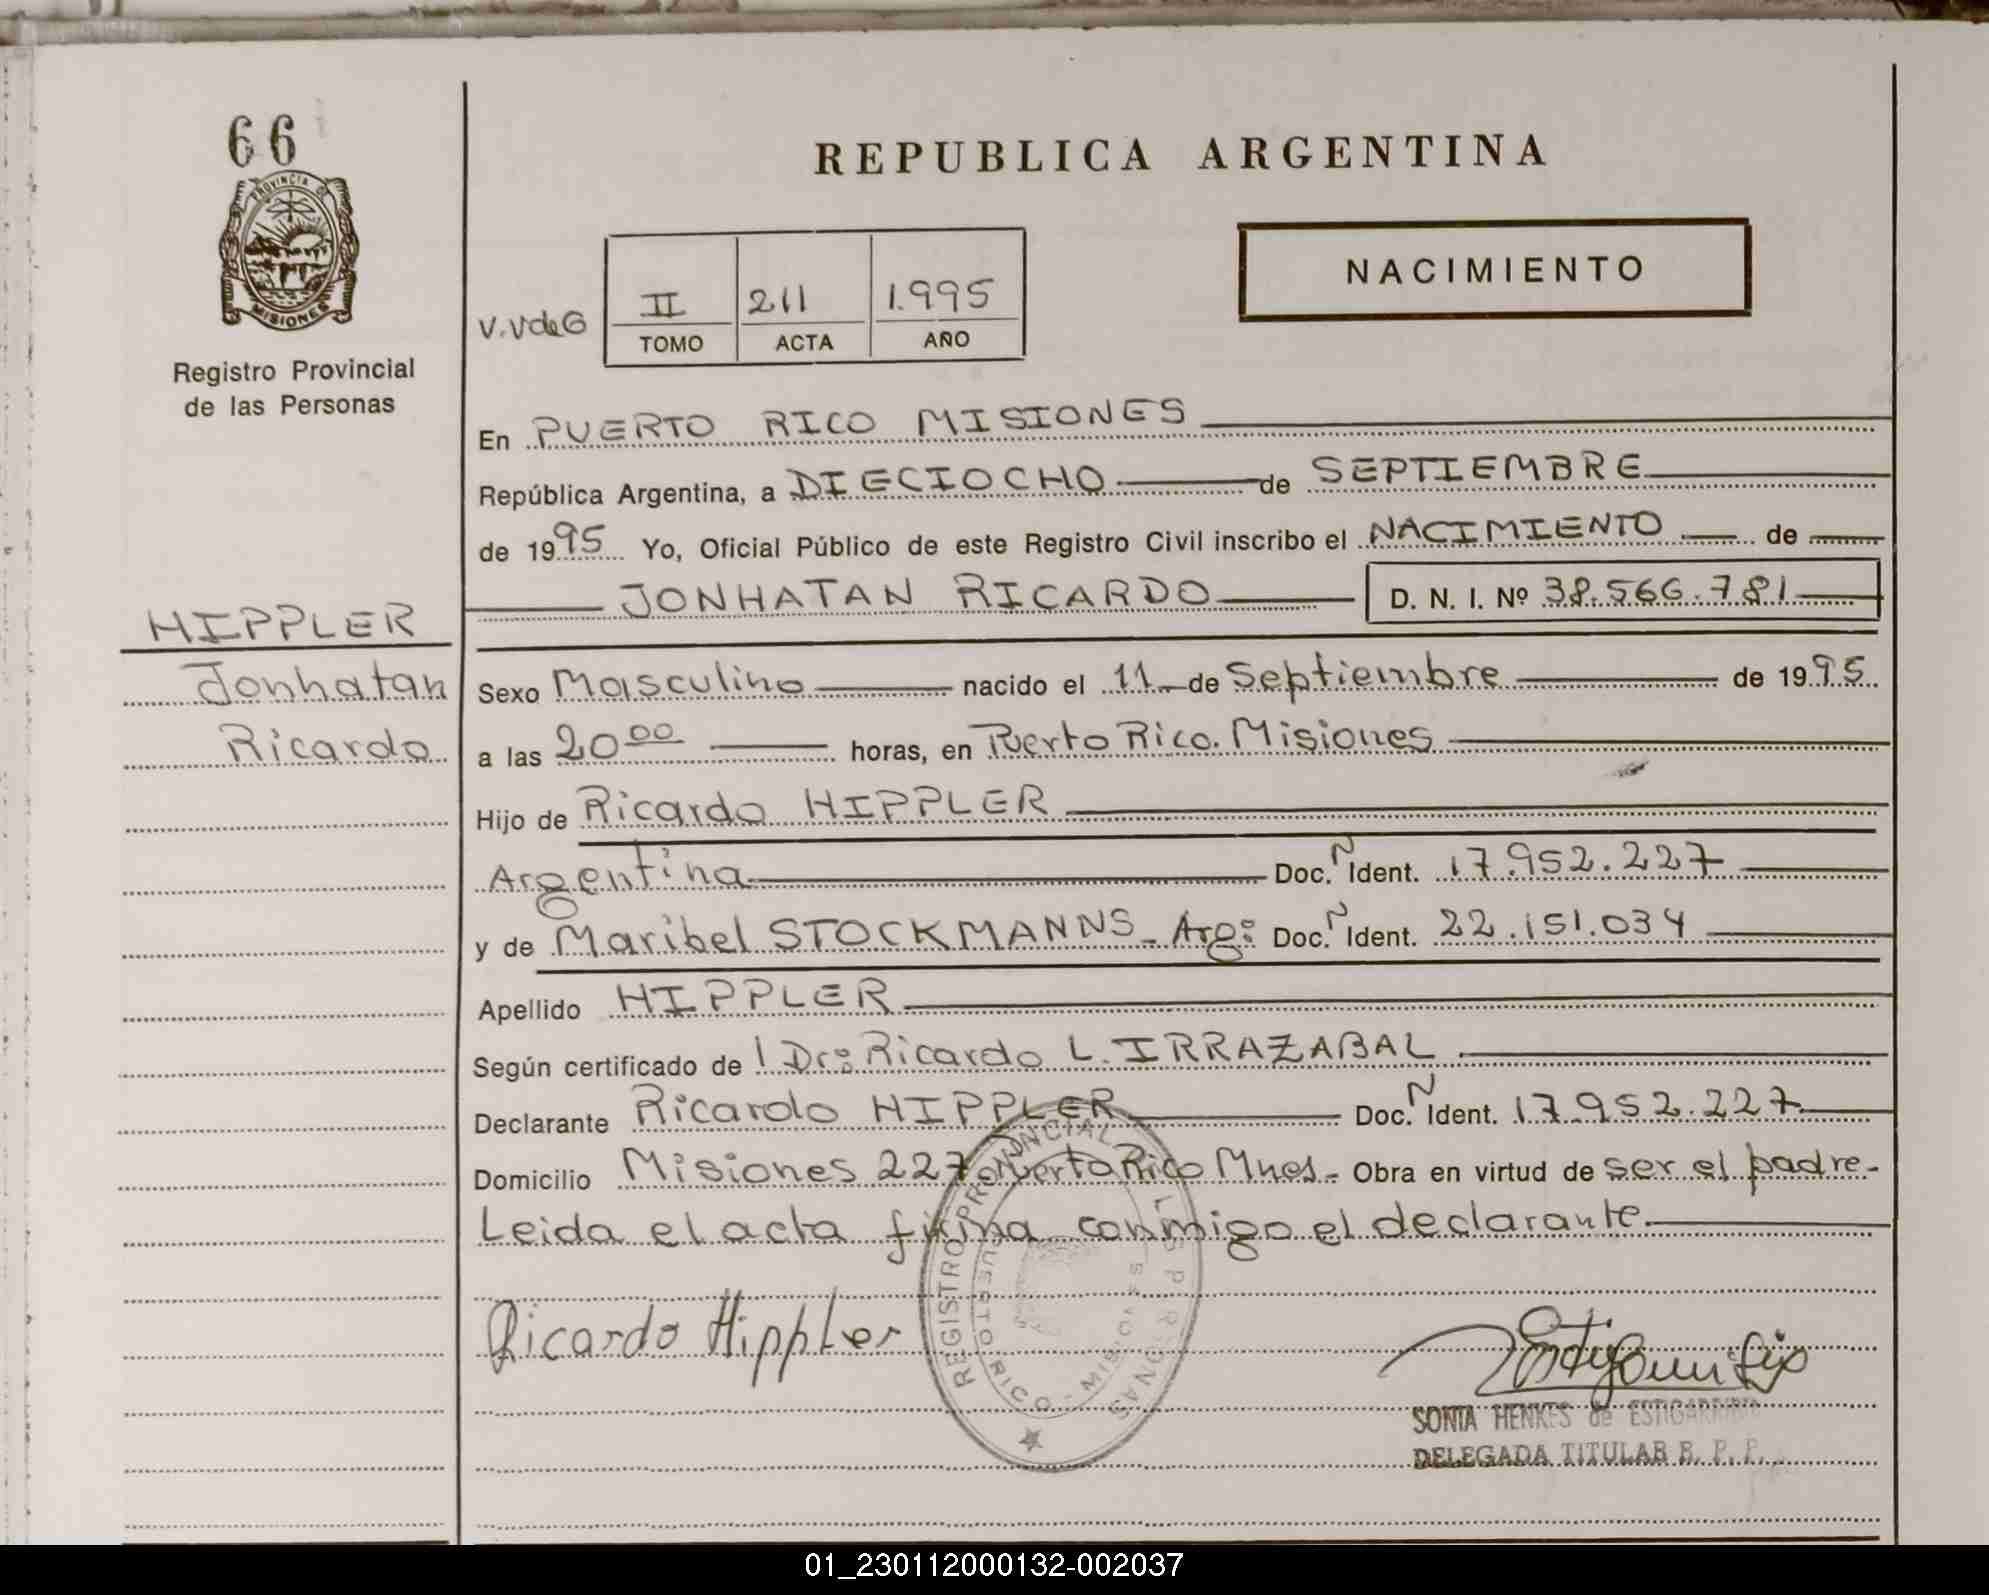 66
PROVINCIA DE
MISIONES
Registro Provincial
de las Personas
REPUBLICA ARGENTINA
NACIMIENTO
V.VdeG
II 211 1.995
TOMO ACTA AÑO
En PUERTO RICO MISIONES
República Argentina, a DIECIOCHO de SEPTIEMBRE
de 1995 Yo, Oficial Público de este Registro Civil inscribo el NACIMIENTO de
JONHATAN RICARDO D. N. I. Nº 38.566.781
HIPPLER
Jonhatan
Ricardo
Sexo Masculino nacido el 11 de Septiembre de 1995
a las 20 00 horas, en Puerto Rico. Misiones
Hijo de Ricardo HIPPLER
Argentina Doc. N Ident. 17.952.227
y de Maribel STOCKMANNS - Arg: Doc. N Ident. 22.151.034
Apellido HIPPLER
Según certificado de l Dr: Ricardo L. IRRAZABAL
Declarante Ricardo HIPPLER Doc. N Ident. 17.952.227
Domicilio Misiones 227 Puerto Rico Mnes.- Obra en virtud de ser el padre.-
Leida el acta firma conmigo el declarante.
Ricardo Hippler
REGISTRO PROVINCIAL
RICO - MISIONES
SONIA HENKES de ESTIGARRIBIA
DELEGADA TITULAR R. P. P.
01_230112000132-002037